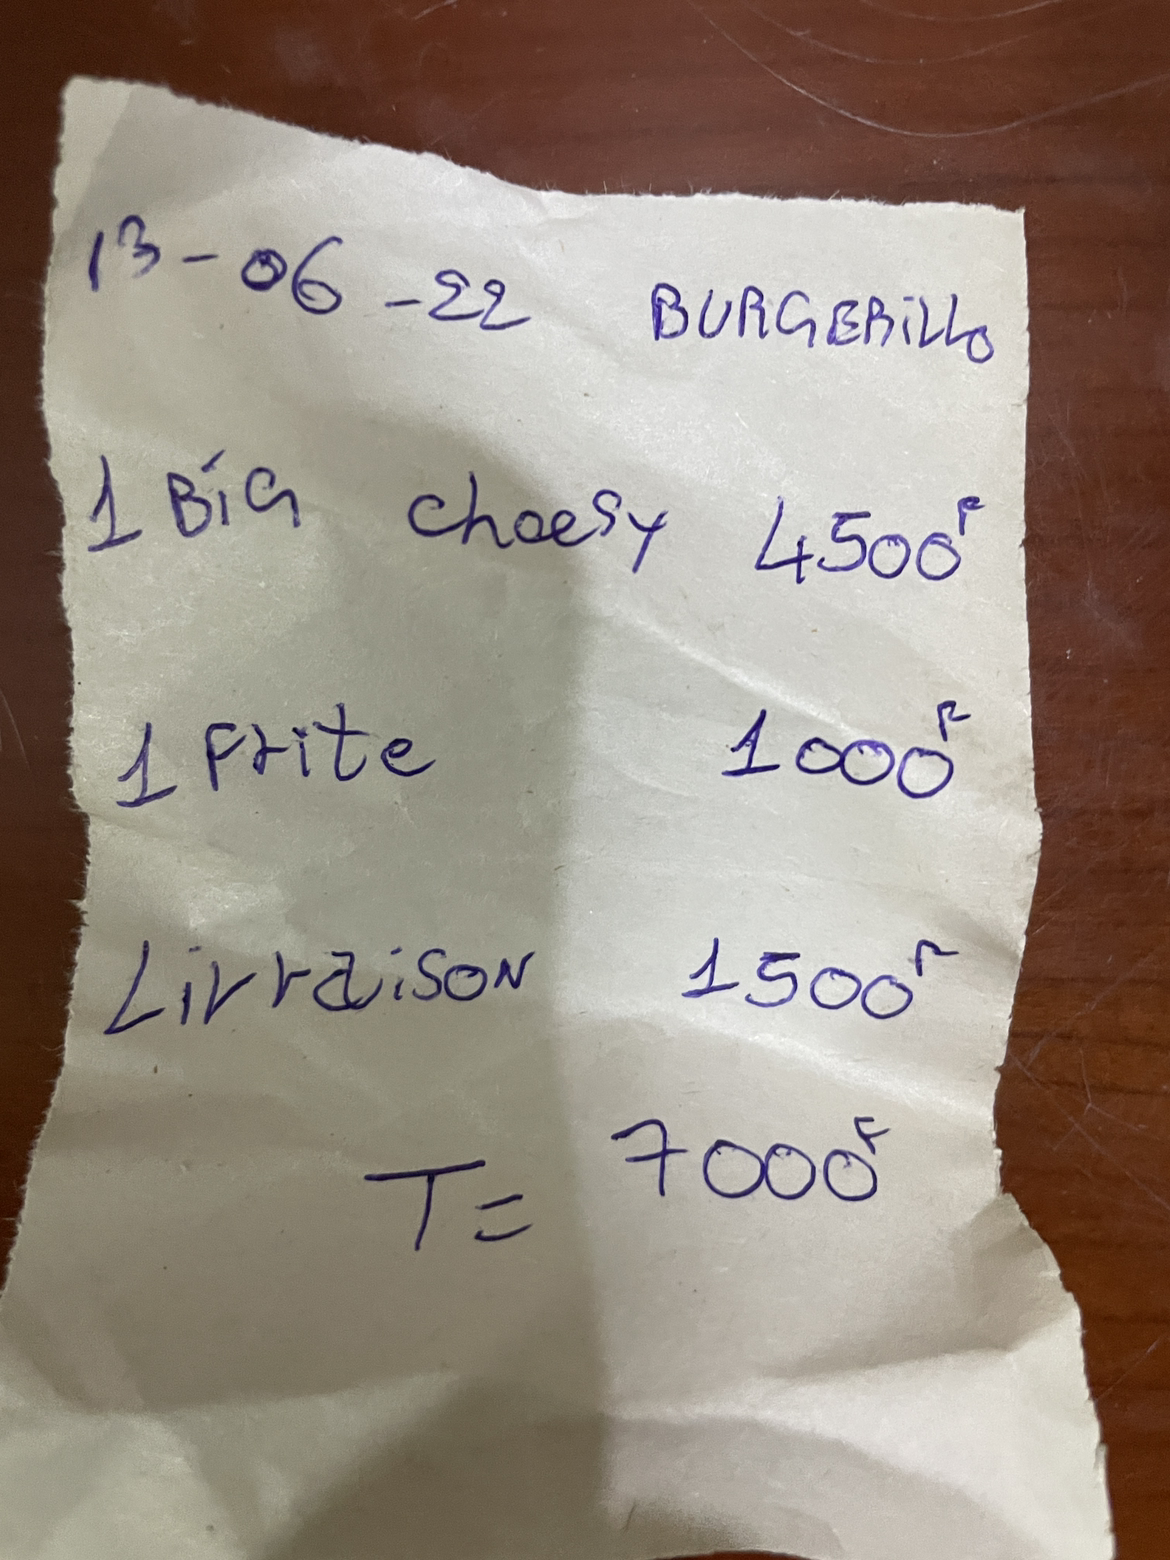 13-06-22 BURGERiLLO
1 BiG choesy 4500F
1 Frite 1000F
Livraison 1500F
T= 7000F